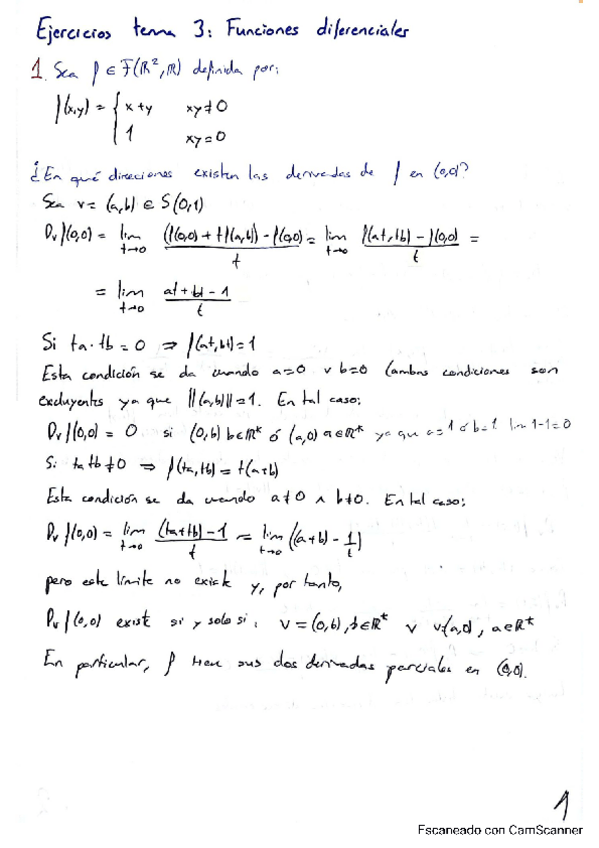 Ejercicios tema 3: Funciones diferenciales
1. Sea f ∈ F(ℝ², ℝ) definida por:
f(x,y) = { x+y xy≠0
1 xy=0
¿En qué direciones existen las derivadas de f en (0,0)?
Sea v = (a,b) ∈ S(0,1)
Dv f(0,0) = lim t→0 (f((0,0) + t(a,b)) - f(0,0))/t = lim t→0 (f(at, tb) - f(0,0))/t =
= lim t→0 (at + bt - 1)/t
Si ta·tb = 0 ⇒ f(at, bt) = 1
Esta condición se da cuando a=0 ∨ b=0 (ambas condiciones son
excluyentes ya que ||(a,b)||=1. En tal caso:
Dv f(0,0) = 0 si (0,b) b∈ℝ* ó (a,0) a∈ℝ* ya que a=1 ó b=1 lim 1-1=0
Si ta tb ≠ 0 ⇒ f(ta, tb) = t(a+b)
Esta condición se da cuando a≠0 ∧ b≠0. En tal caso:
Dv f(0,0) = lim t→0 ((ta+tb) - 1)/t = lim t→0 ((a+b) - 1/t)
pero este límite no existe y, por tanto,
Dv f(0,0) existe si y solo si: v = (0,b), b∈ℝ* ∨ v=(a,0), a∈ℝ*
En particular, f tiene sus dos derivadas parciales en (0,0).
1
Escaneado con CamScanner